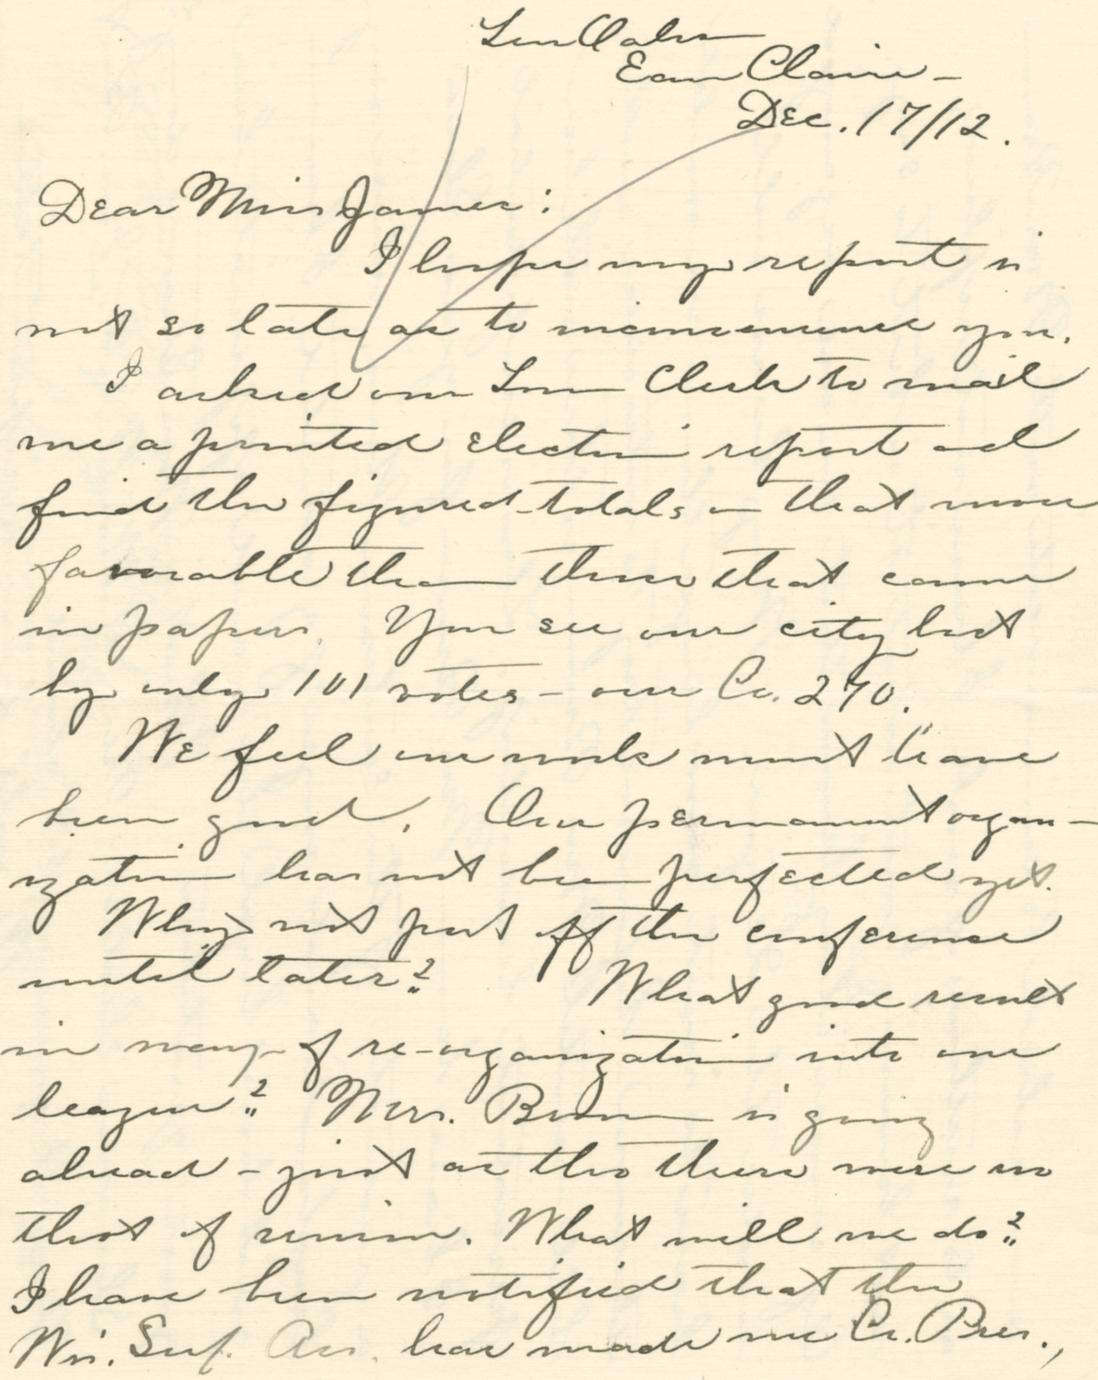 Eau Claire -
Dec. 17/12.
Dear Miss James:
I hope my report is
not so late as to inconvenience you.
I asked our Town Clerk to mail
me a printed election report and
find the figured totals on that more
favorable than those that came
in papers. You see our city lost
by only 101 votes - our Co. 270.
We feel our work must have
been good. Our permanent organ-
ization has not been perfected yet.
Why not put off the conference
until later? What good result
in way of re-organization into one
league? Mrs. Brown is going
ahead - just as tho there were no
thot of union. What will we do?
I have been notified that the
Wis. Suf. Ass. has made me Co. Pres.,